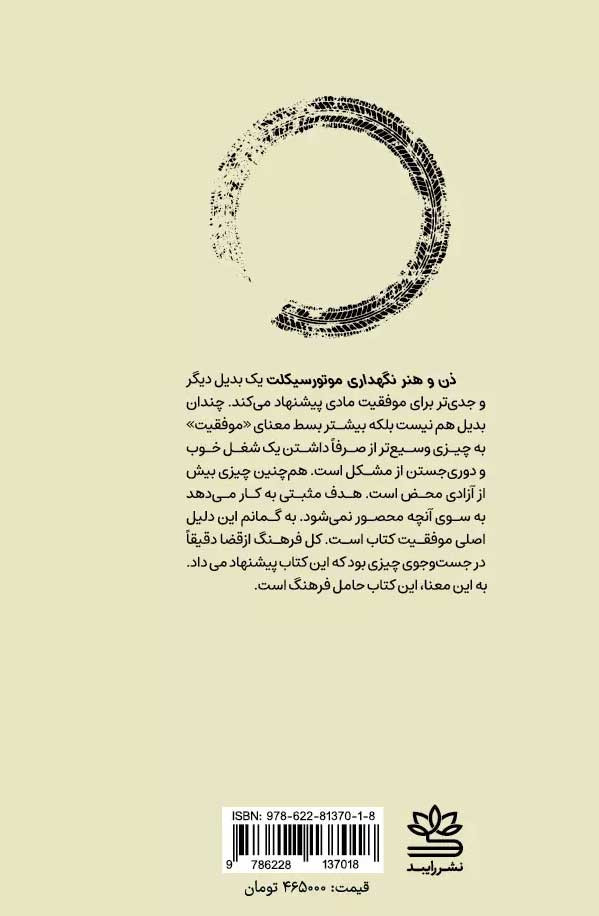 ذن و هنر نگهداری موتورسیکلت یک بدیل دیگر
و جدی‌تر برای موفقیت مادی پیشنهاد می‌کند. چندان
بدیل هم نیست بلکه بیشتر بسط معنای «موفقیت»
به چیزی وسیع‌تر از صرفاً داشتن یک شغل خوب
و دوری‌جستن از مشکل است. هم‌چنین چیزی بیش
از آزادی محض است. هدف مثبتی به کار می‌دهد
به سوی آنچه محصور نمی‌شود. به گمانم این دلیل
اصلی موفقیت کتاب است. کل فرهنگ ازقضا دقیقاً
در جست‌وجوی چیزی بود که این کتاب پیشنهاد می داد.
به این معنا، این کتاب حامل فرهنگ است.
ISBN: 978-622-81370-1-8
9 786228 137018
قیمت: ۴۶۵۰۰۰ تومان
نشر رایبد